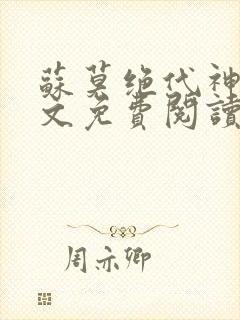 蘇莫绝代神
文免費閱讀
周亦卿